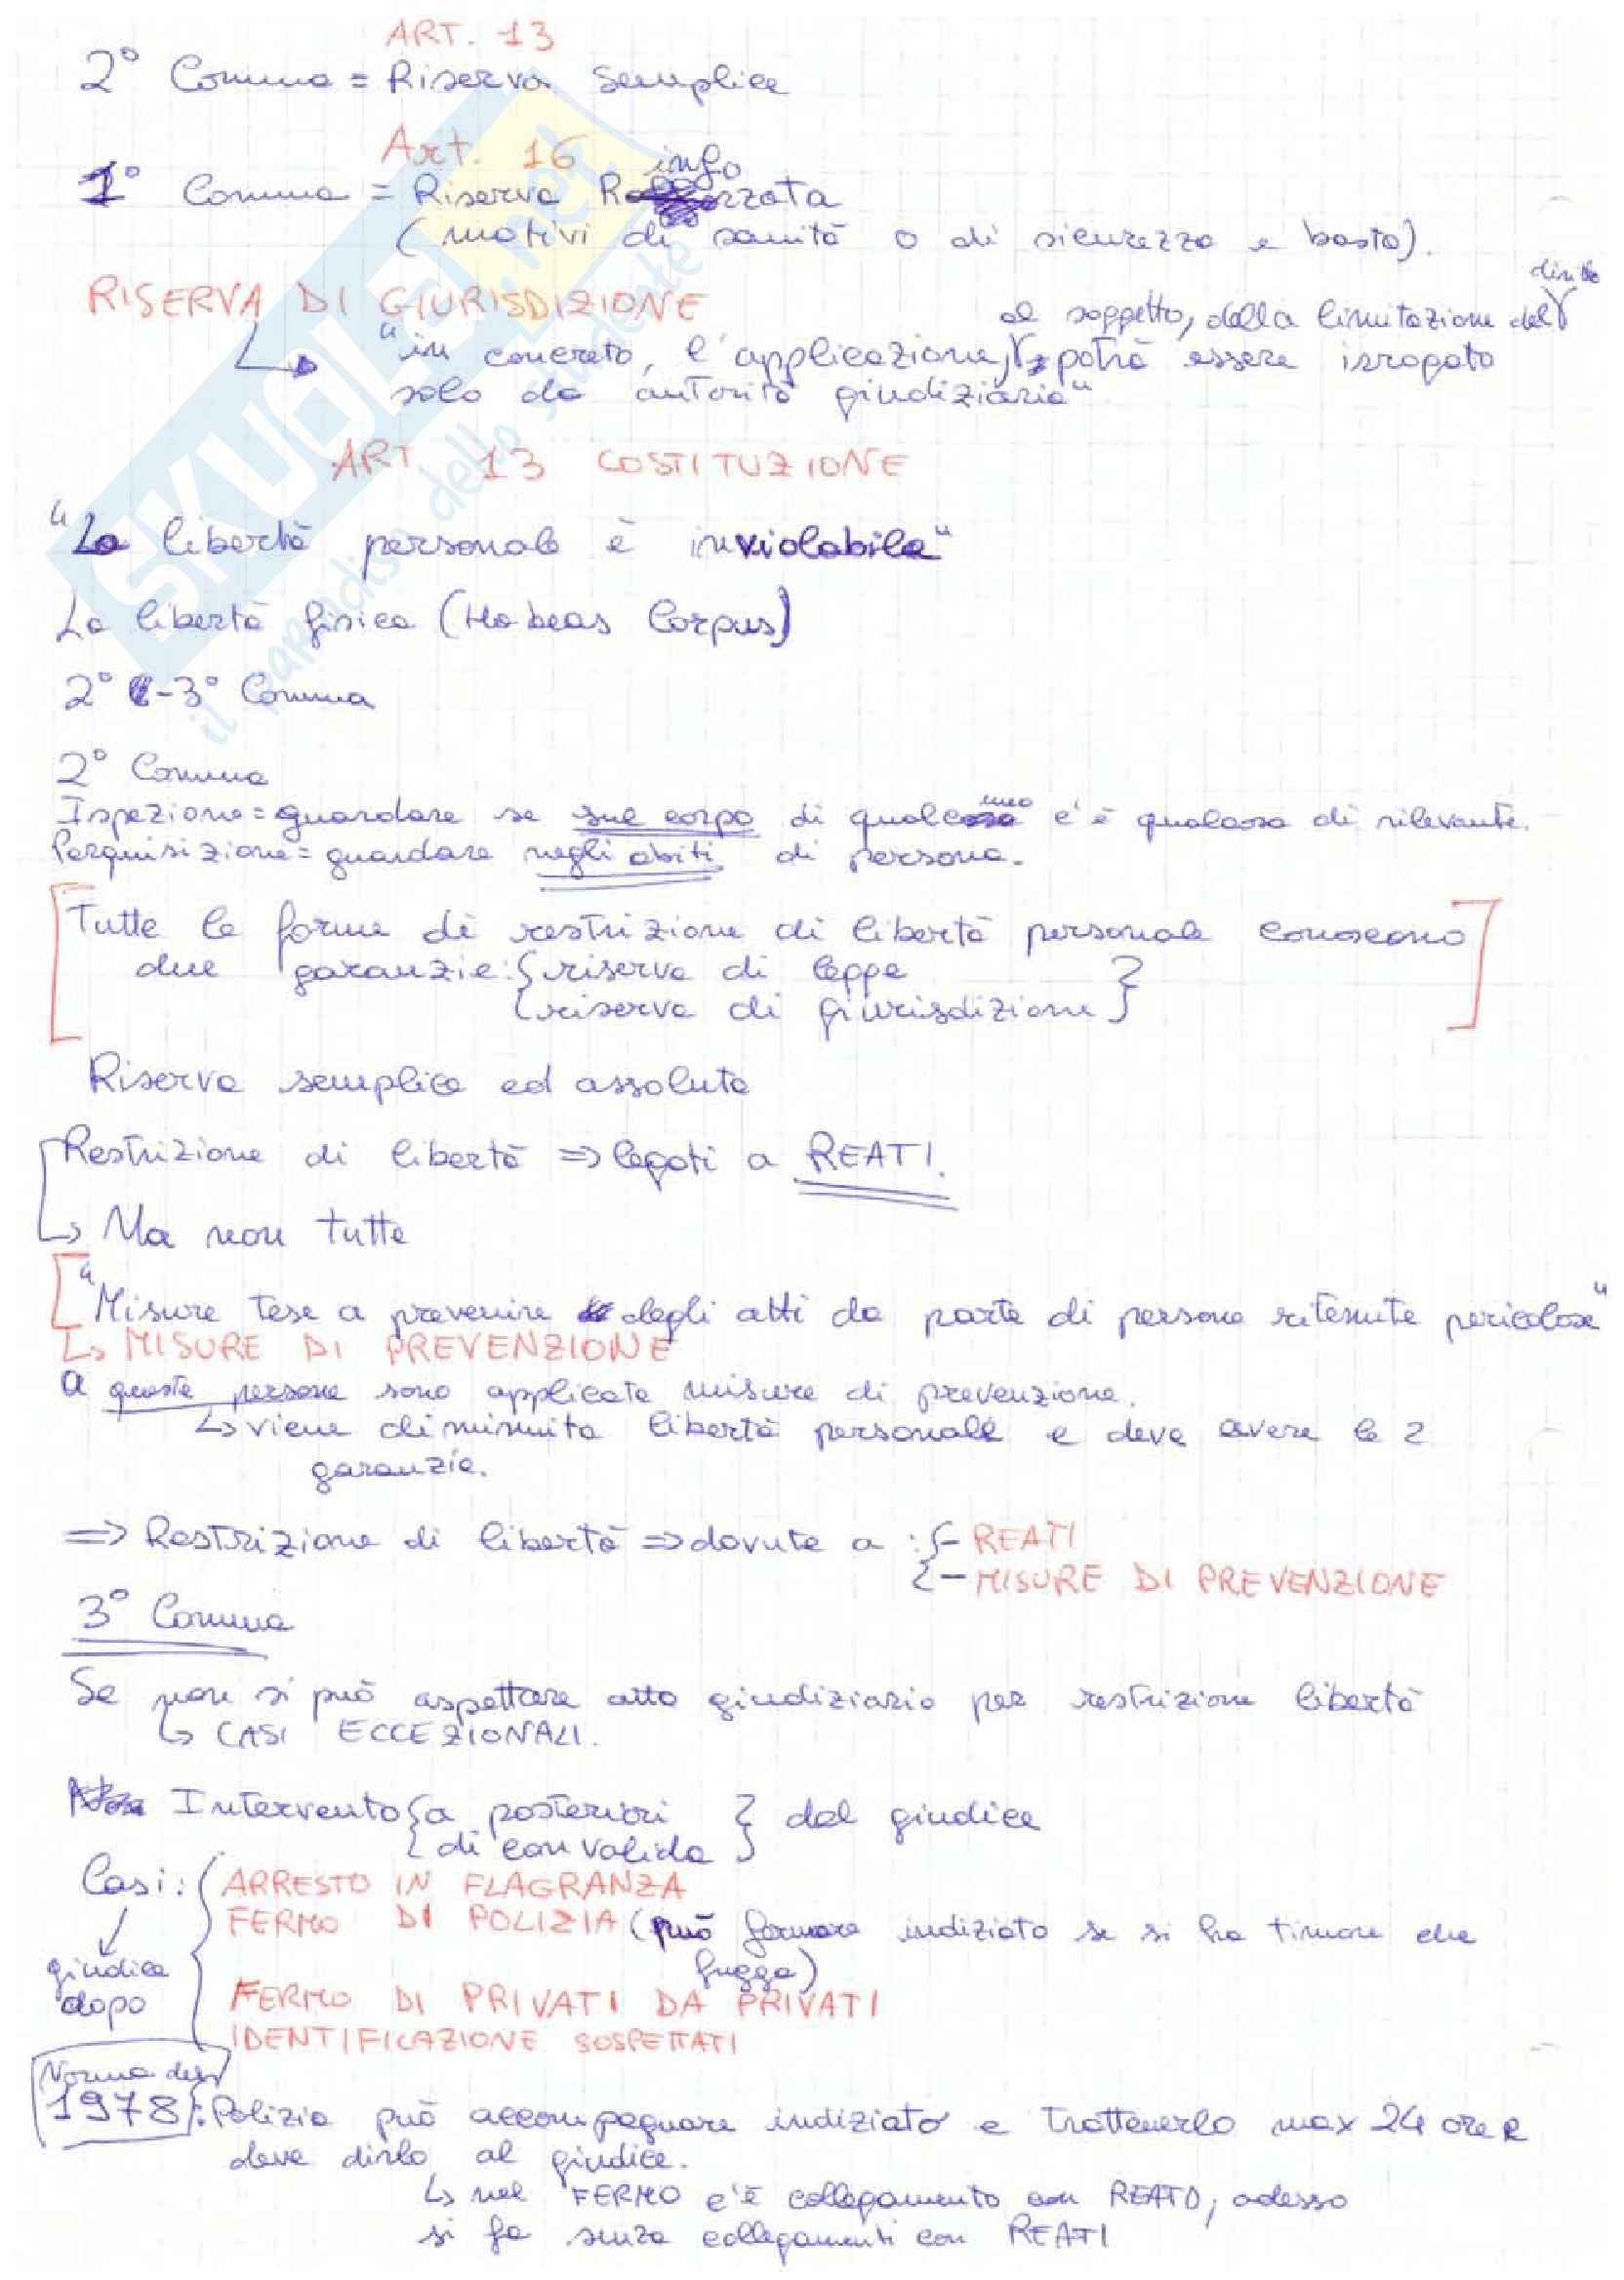 ART. 13
2° Comma = Riserva semplice
Art. 16
info
1° Comma = Riserva R zzata
(motivi di sanità o di sicurezza e basta).
diritto
RISERVA DI GIURISDIZIONE
al soggetto, della limitazione del
"in concreto, l'applicazione, potrà essere irrogato
solo da autorità giudiziaria"
ART 13 COSTITUZIONE
"La libertà personale è inviolabile"
La libertà fisica (Habeas Corpus)
2° -3° Comma
2° Comma
Ispezione = guardare se sul corpo di qualcuno c'è qualcosa di rilevante.
Perquisizione = guardare negli abiti di persona.
Tutte le forme di restrizione di libertà personale conoscono
due garanzie: { riserva di legge
{ riserva di giurisdizione }
Riserva semplice ed assoluta
Restrizione di libertà => legati a REATI.
↳ Ma non tutte
"Misure tese a prevenire degli atti da parte di persone ritenute pericolose"
↳ MISURE DI PREVENZIONE
a queste persone sono applicate misure di prevenzione.
↳ viene diminuita libertà personale e deve avere le 2
garanzie.
=> Restrizione di libertà => dovute a : {- REATI
{- MISURE DI PREVENZIONE
3° Comma
Se non si può aspettare atto giudiziario per restrizione libertà
↳ CASI ECCEZIONALI.
Intervento { a posteriori } del giudice
{ di convalida }
Casi: { ARRESTO IN FLAGRANZA
FERMO DI POLIZIA (può fermare indiziato se si ha timore che
giudice fugga)
dopo FERMO DI PRIVATI DA PRIVATI
IDENTIFICAZIONE SOSPETTATI
Norma del
1978: Polizia può accompagnare indiziato e trattenerlo max 24 ore e
deve dirlo al giudice.
↳ nel FERMO c'è collegamento con REATO, adesso
si fa senza collegamenti con REATI
SKUOLA.net
il paradiso dello studente